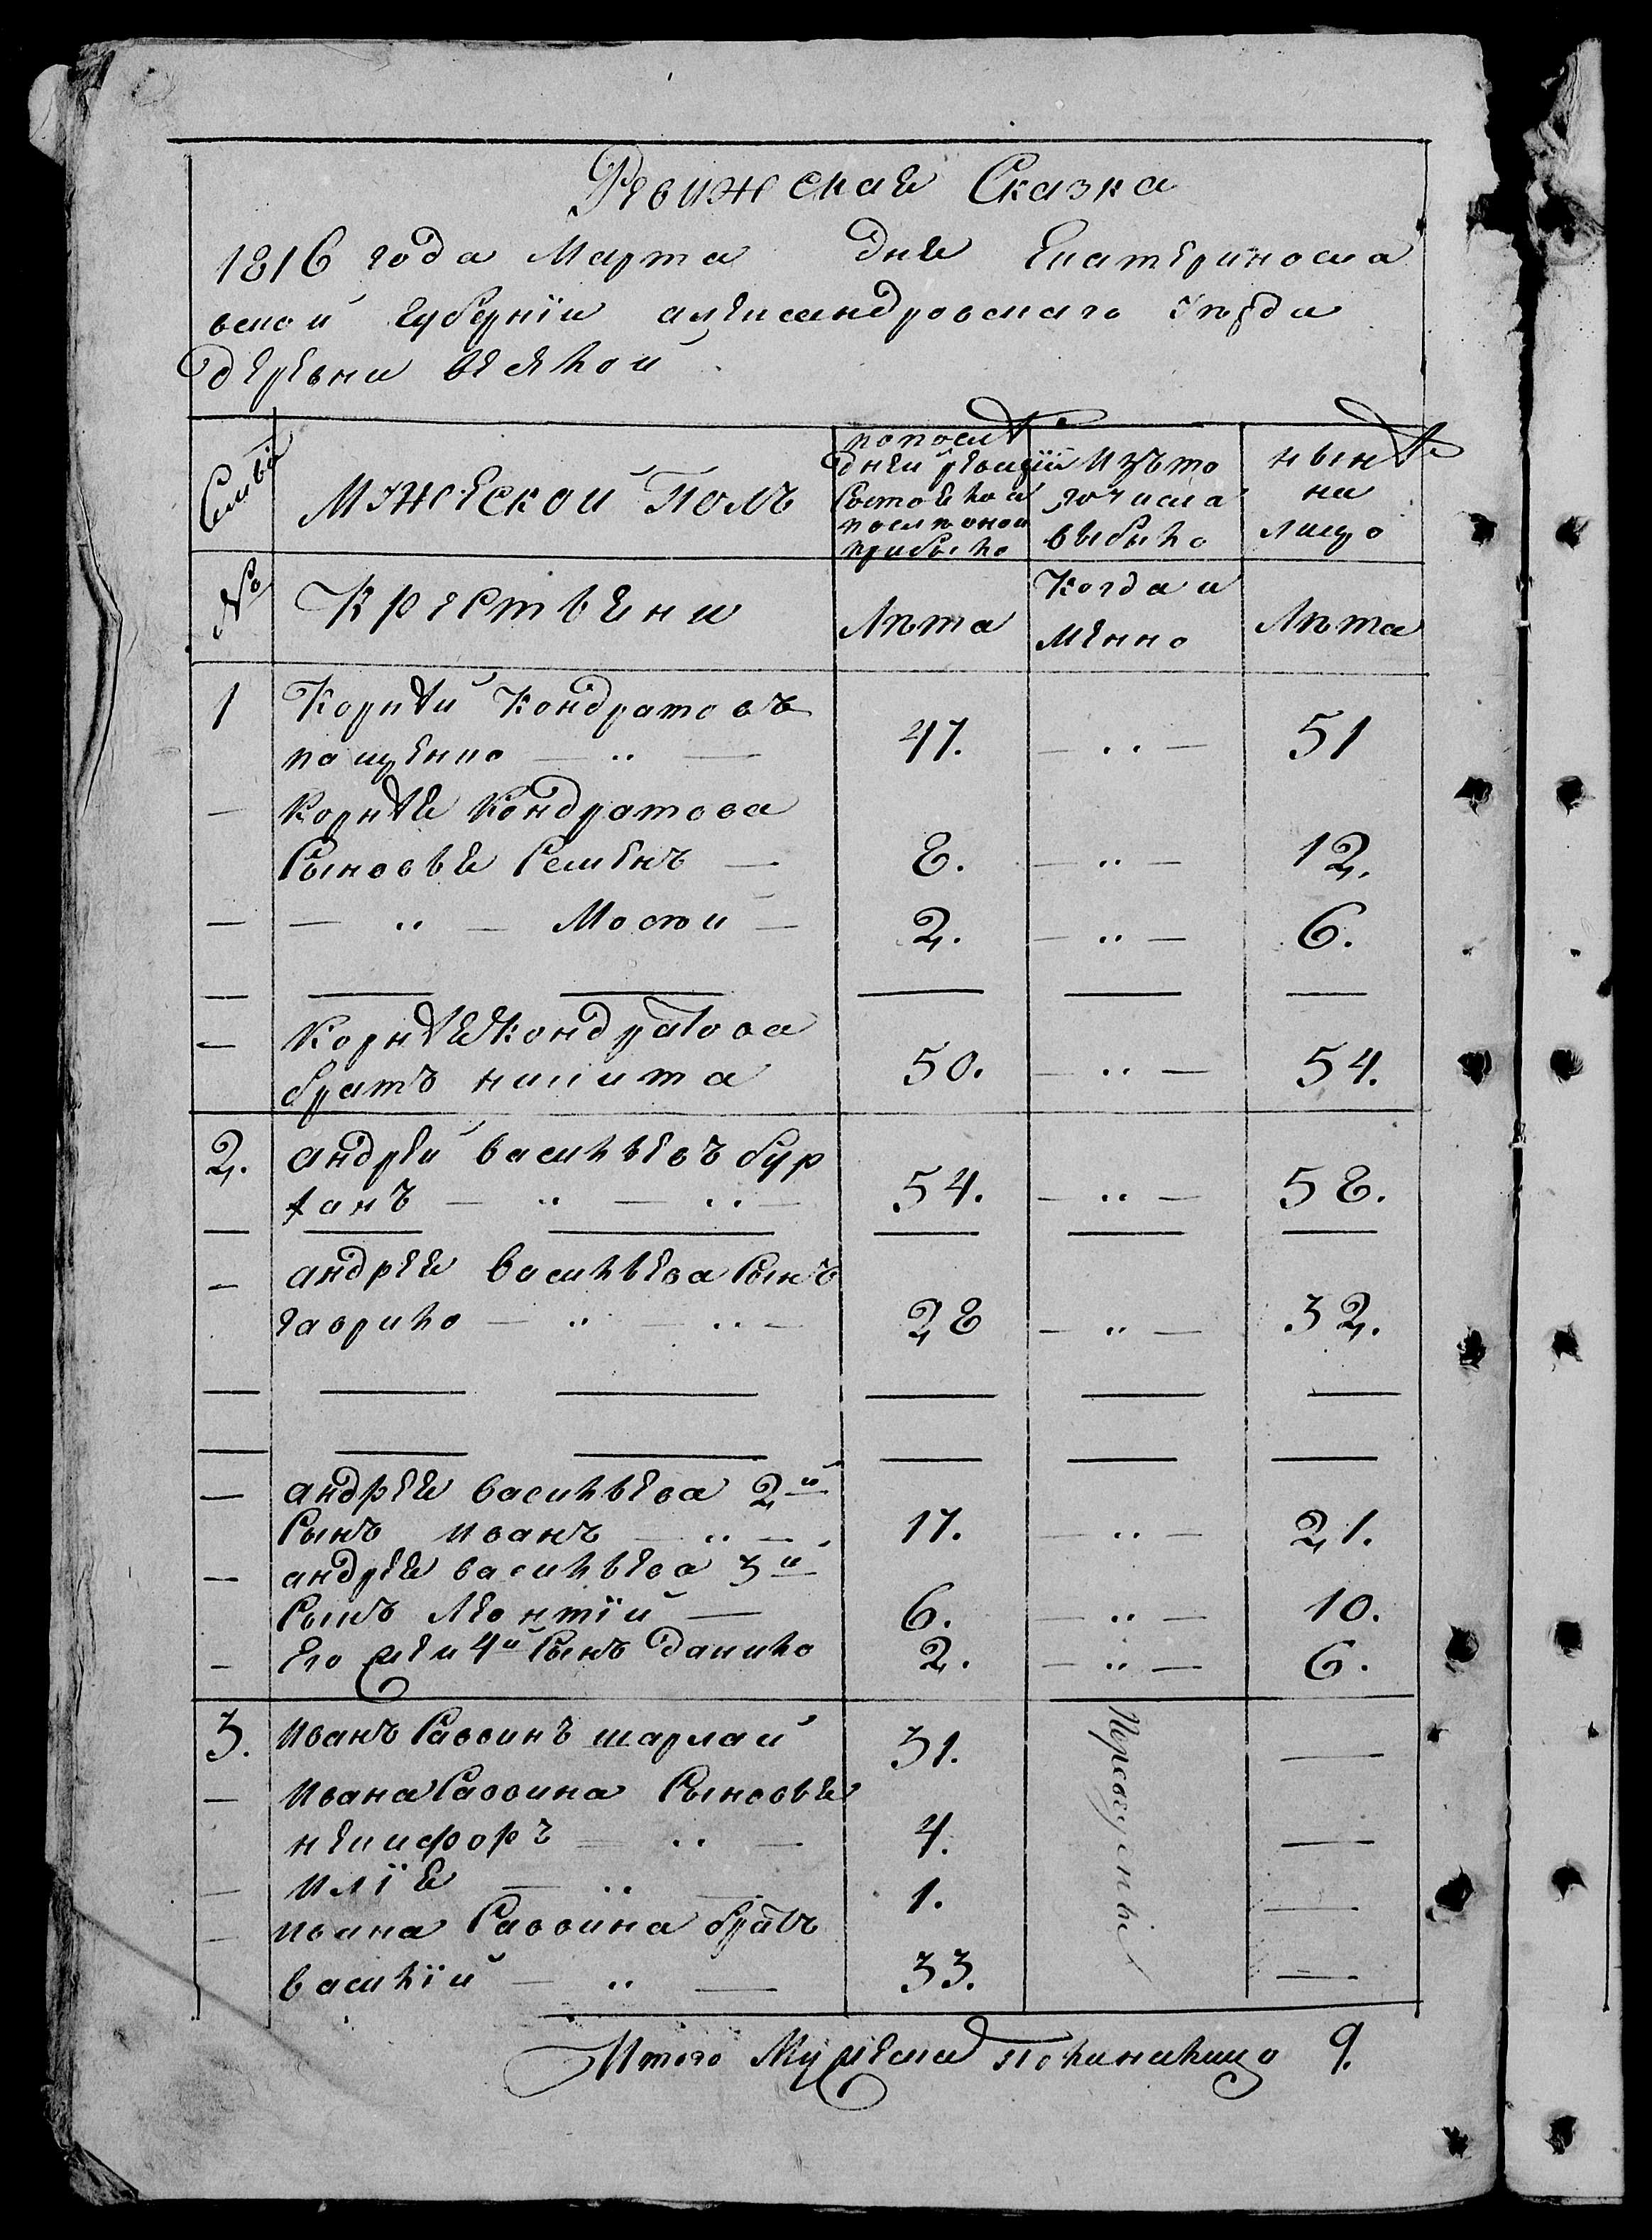 Ревижская Сказка
1816 года Марта дня Екатериносла
вской губернїи александровскаго уѣзда
деревни веселой
Семьи
Мужеской Полъ
попослѣ
дней ревизїи
Состояло и
послѣ оной
прибыло
Изъ то
го числа
выбыло
нынѣ
на
лицо
№
Крестьени
Лѣта
Когда и
менно
Лѣта
1 Корнѣй Кондратовъ
пащенко — .. — 47. — .. — 51
— Корнѣя Кондратова
Сыновья Семенъ — 8. — .. — 12.
— — .. — Мосѣй — 2. — .. — 6.
— Корнѣя Кондратова
братъ никита 50. — .. — 54.
2. андрей васильевъ бур
ханъ — .. — .. — 54. — .. — 58.
— андрея васильева Сынъ
гаврило — .. — .. — 28 — .. — 32.
— андрея васильева 2й
Сынъ иванъ — .. — 17. — .. — 21.
— андрея васильева 3й
Сынъ Леонтїй — 6. — .. — 10.
— Его жеи 4й Сынъ данило 2. — .. — 6.
3. иванъ Саввинъ шарлай 31. —
— ивана Саввина Сыновья
никифоръ — .. — 4. —
— илїя — .. — 1. —
— ивана Саввина братъ
василїй — .. — 33. —
Итого Мужеска пола налицо 9.